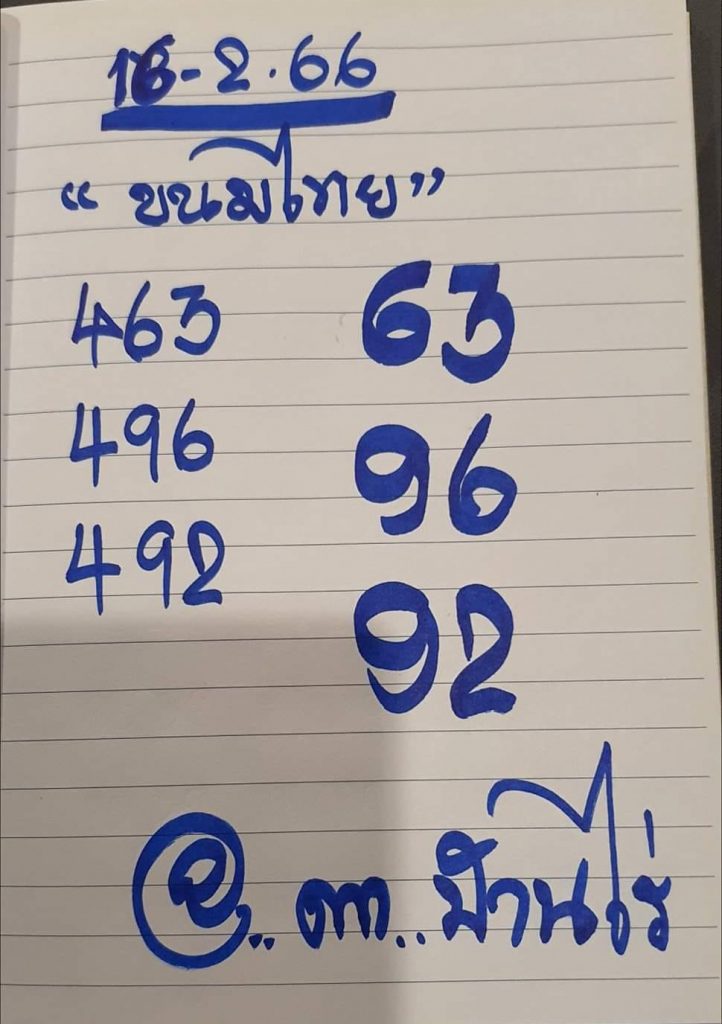 16-2.66
“ขนมไทย”
463 63
496 96
492 92
@..ตา..บ้านไร่